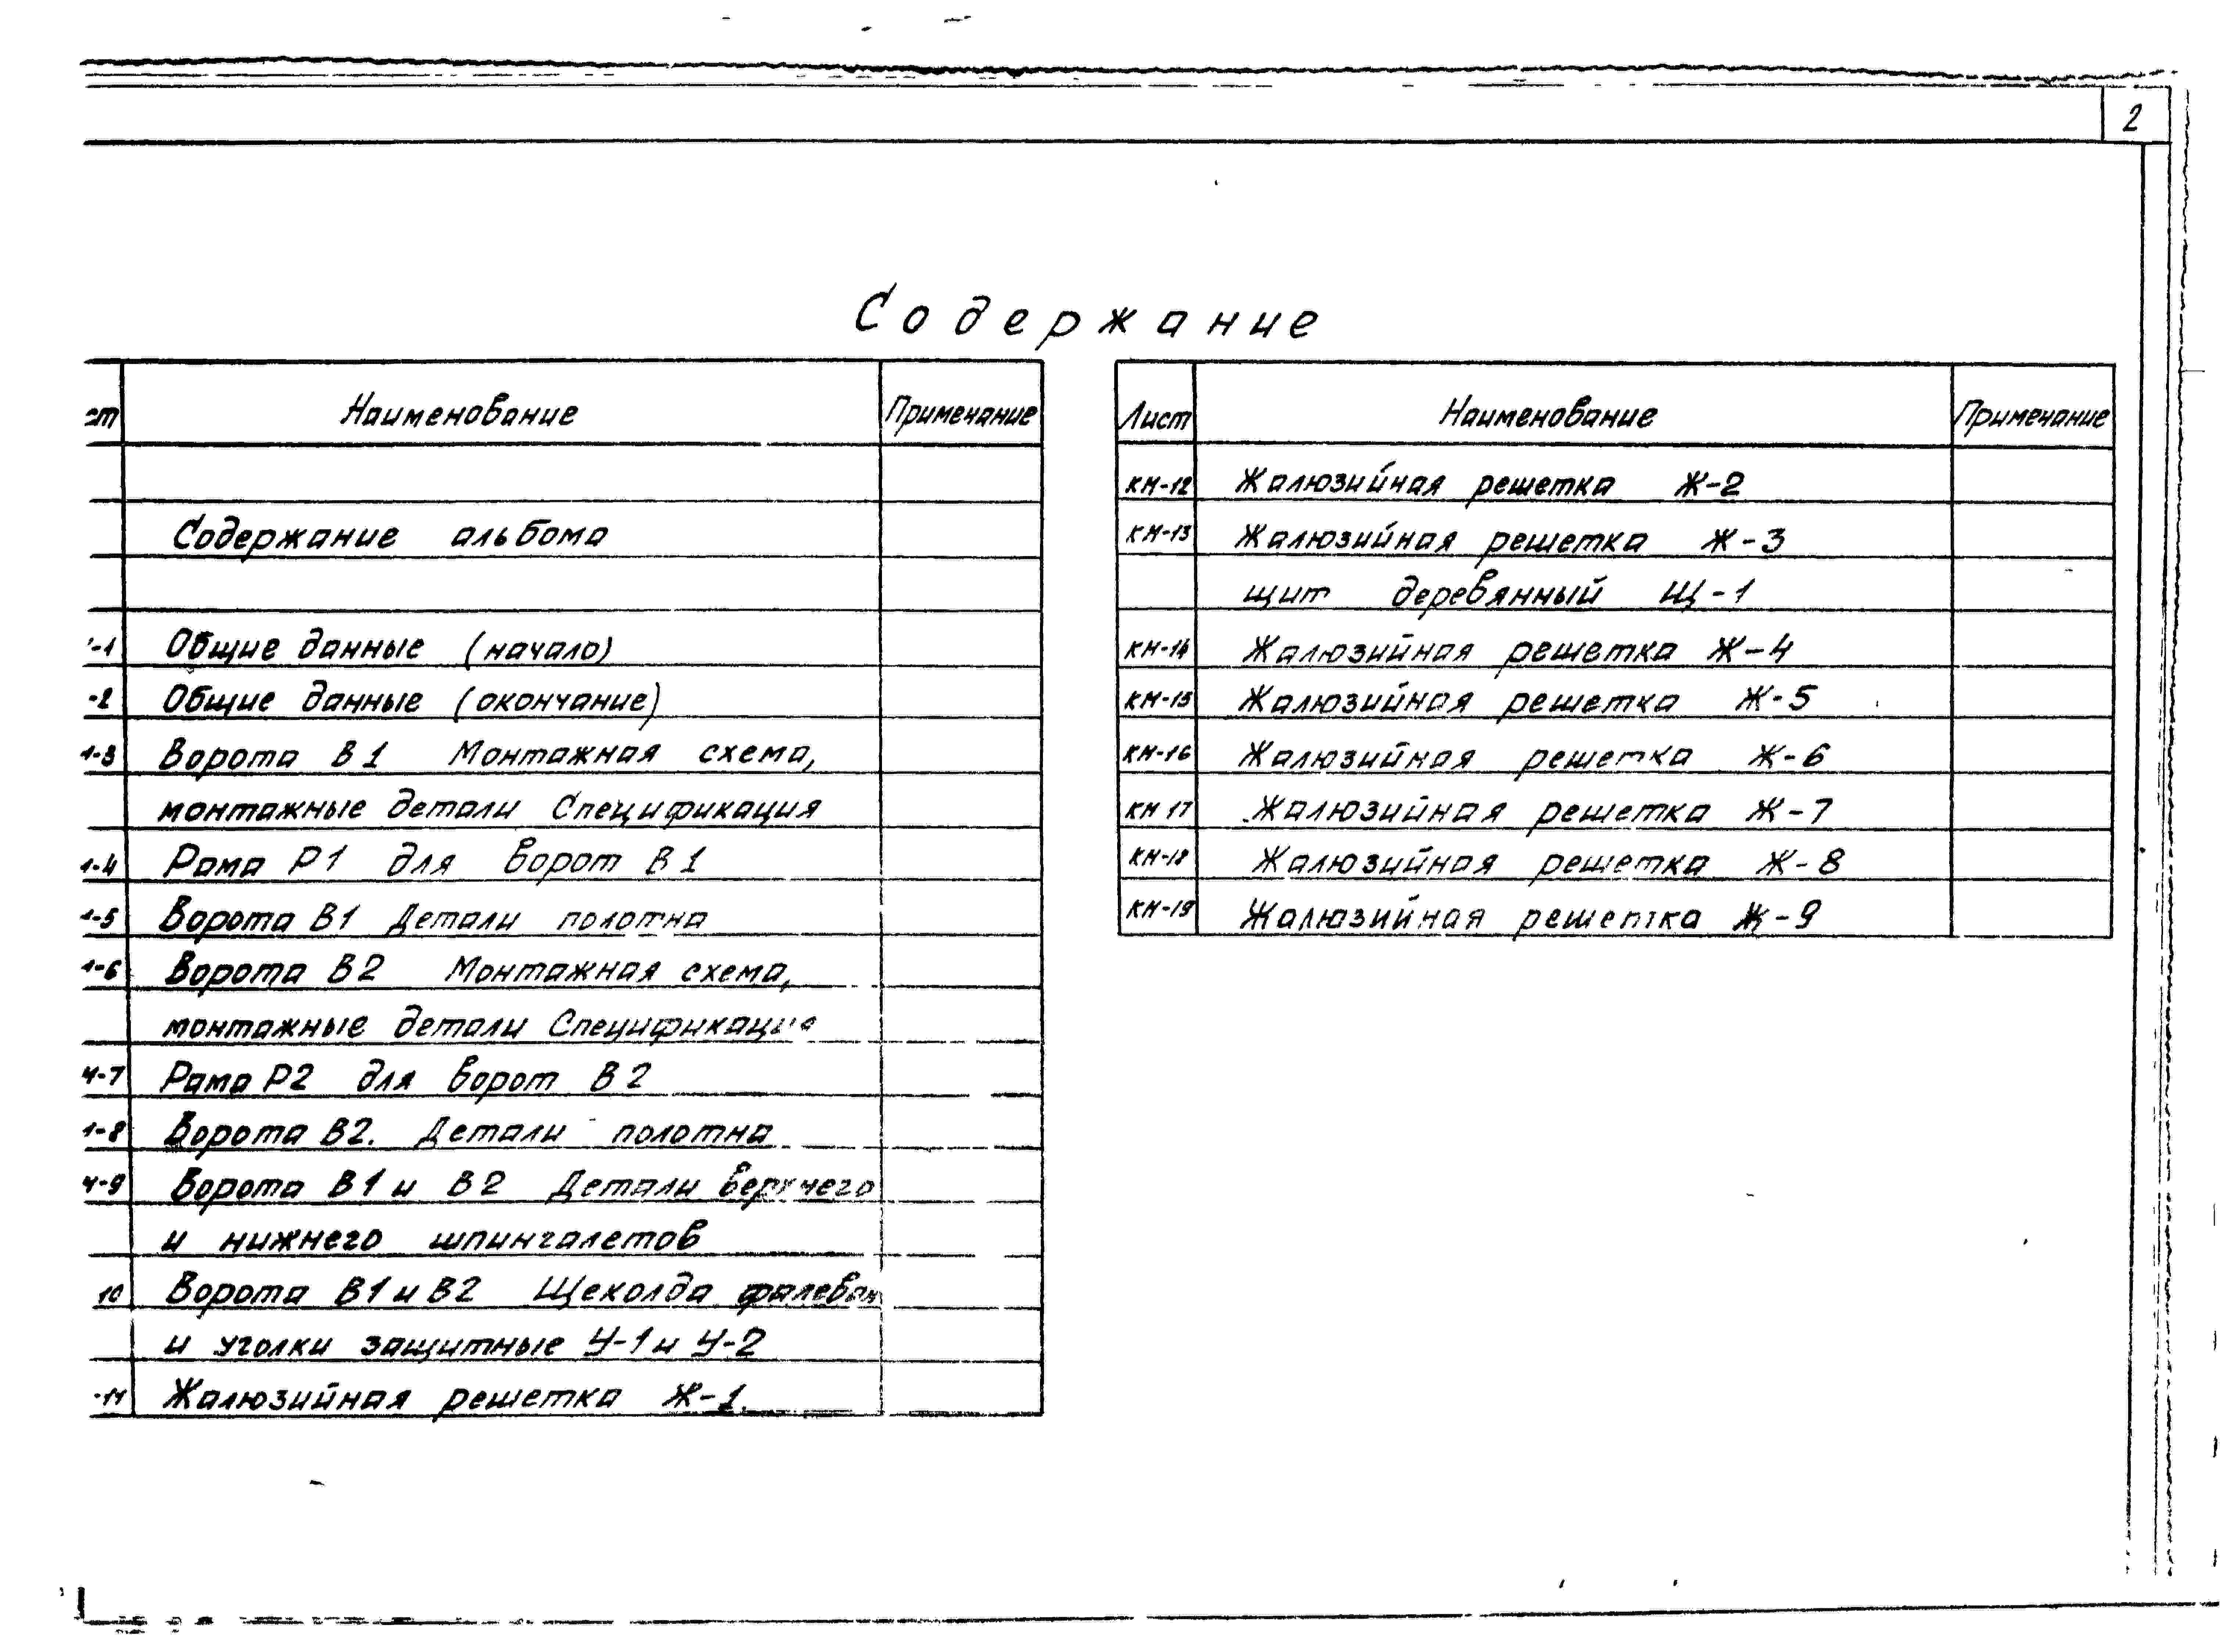 2
Содержание
ст Наименование Примечание
Содержание альбома
-1 Общие данные (начало)
-2 Общие данные (окончание)
-3 Ворота В1 Монтажная схема,
монтажные детали Спецификация
-4 Рама Р1 для ворот В1
-5 Ворота В1 Детали полотна
-6 Ворота В2 Монтажная схема,
монтажные детали Спецификация
-7 Рама Р2 для ворот В2
-8 Ворота В2. Детали полотна
-9 Ворота В1 и В2 Детали верхнего
и нижнего шпингалетов
10 Ворота В1 и В2 Щеколда фалевая
и уголки защитные У-1 и У-2
-11 Жалюзийная решетка Ж-1.
Лист Наименование Примечание
КМ-12 Жалюзийная решетка Ж-2
КМ-13 Жалюзийная решетка Ж-3
щит деревянный Щ-1
КМ-14 Жалюзийная решетка Ж-4
КМ-15 Жалюзийная решетка Ж-5
КМ-16 Жалюзийная решетка Ж-6
КМ 17 Жалюзийная решетка Ж-7
КМ-18 Жалюзийная решетка Ж-8
КМ-19 Жалюзийная решетка Ж-9